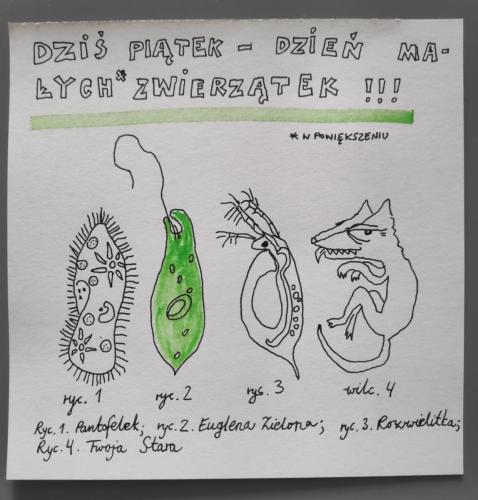 DZIŚ PIĄTEK – DZIEŃ MA-
ŁYCH* ZWIERZĄTEK !!!
* W POWIĘKSZENIU
ryc. 1
ryc. 2
rys. 3
wilc. 4
Ryc. 1. Pantofelek; ryc. 2. Euglena Zielona; ryc. 3. Rozwielitka;
Ryc. 4. Twoja Stara